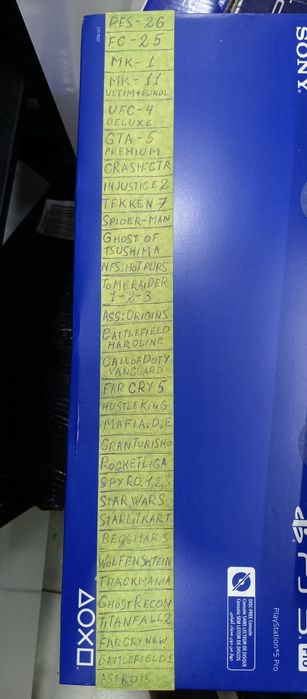 PES-26
FC-25
MK-1
MK-11
ULTIM+BUNDL
UFC-4
DELUXE
GTA-5
PREMIUM
CRASH:CTR
INJUSTICE2
TEKKEN 7
SPIDER-MAN
GHOST OF
TSUSHIMA
NFS:HOTPURS
TOMBRAIDER
1-2-3
ASS:ORIGINS
BATTLEFIELD
HARDLINE
CALLOFDOTY
VANGUARD
FAR CRY 5
HUSTLEKING
MAFIA.D.E
GRANTURISMO
ROCKETLIGA
SPYRO.1,2,3
STAR WARS
STARLITKART
WOLFFENSHTEIN
TRACKMANIA
GHOSTRECON
TITANFALL2
FARCRYNEW
BATTLEFIELD1
SONY
PlayStation®5 Pro
DISC FREE Console